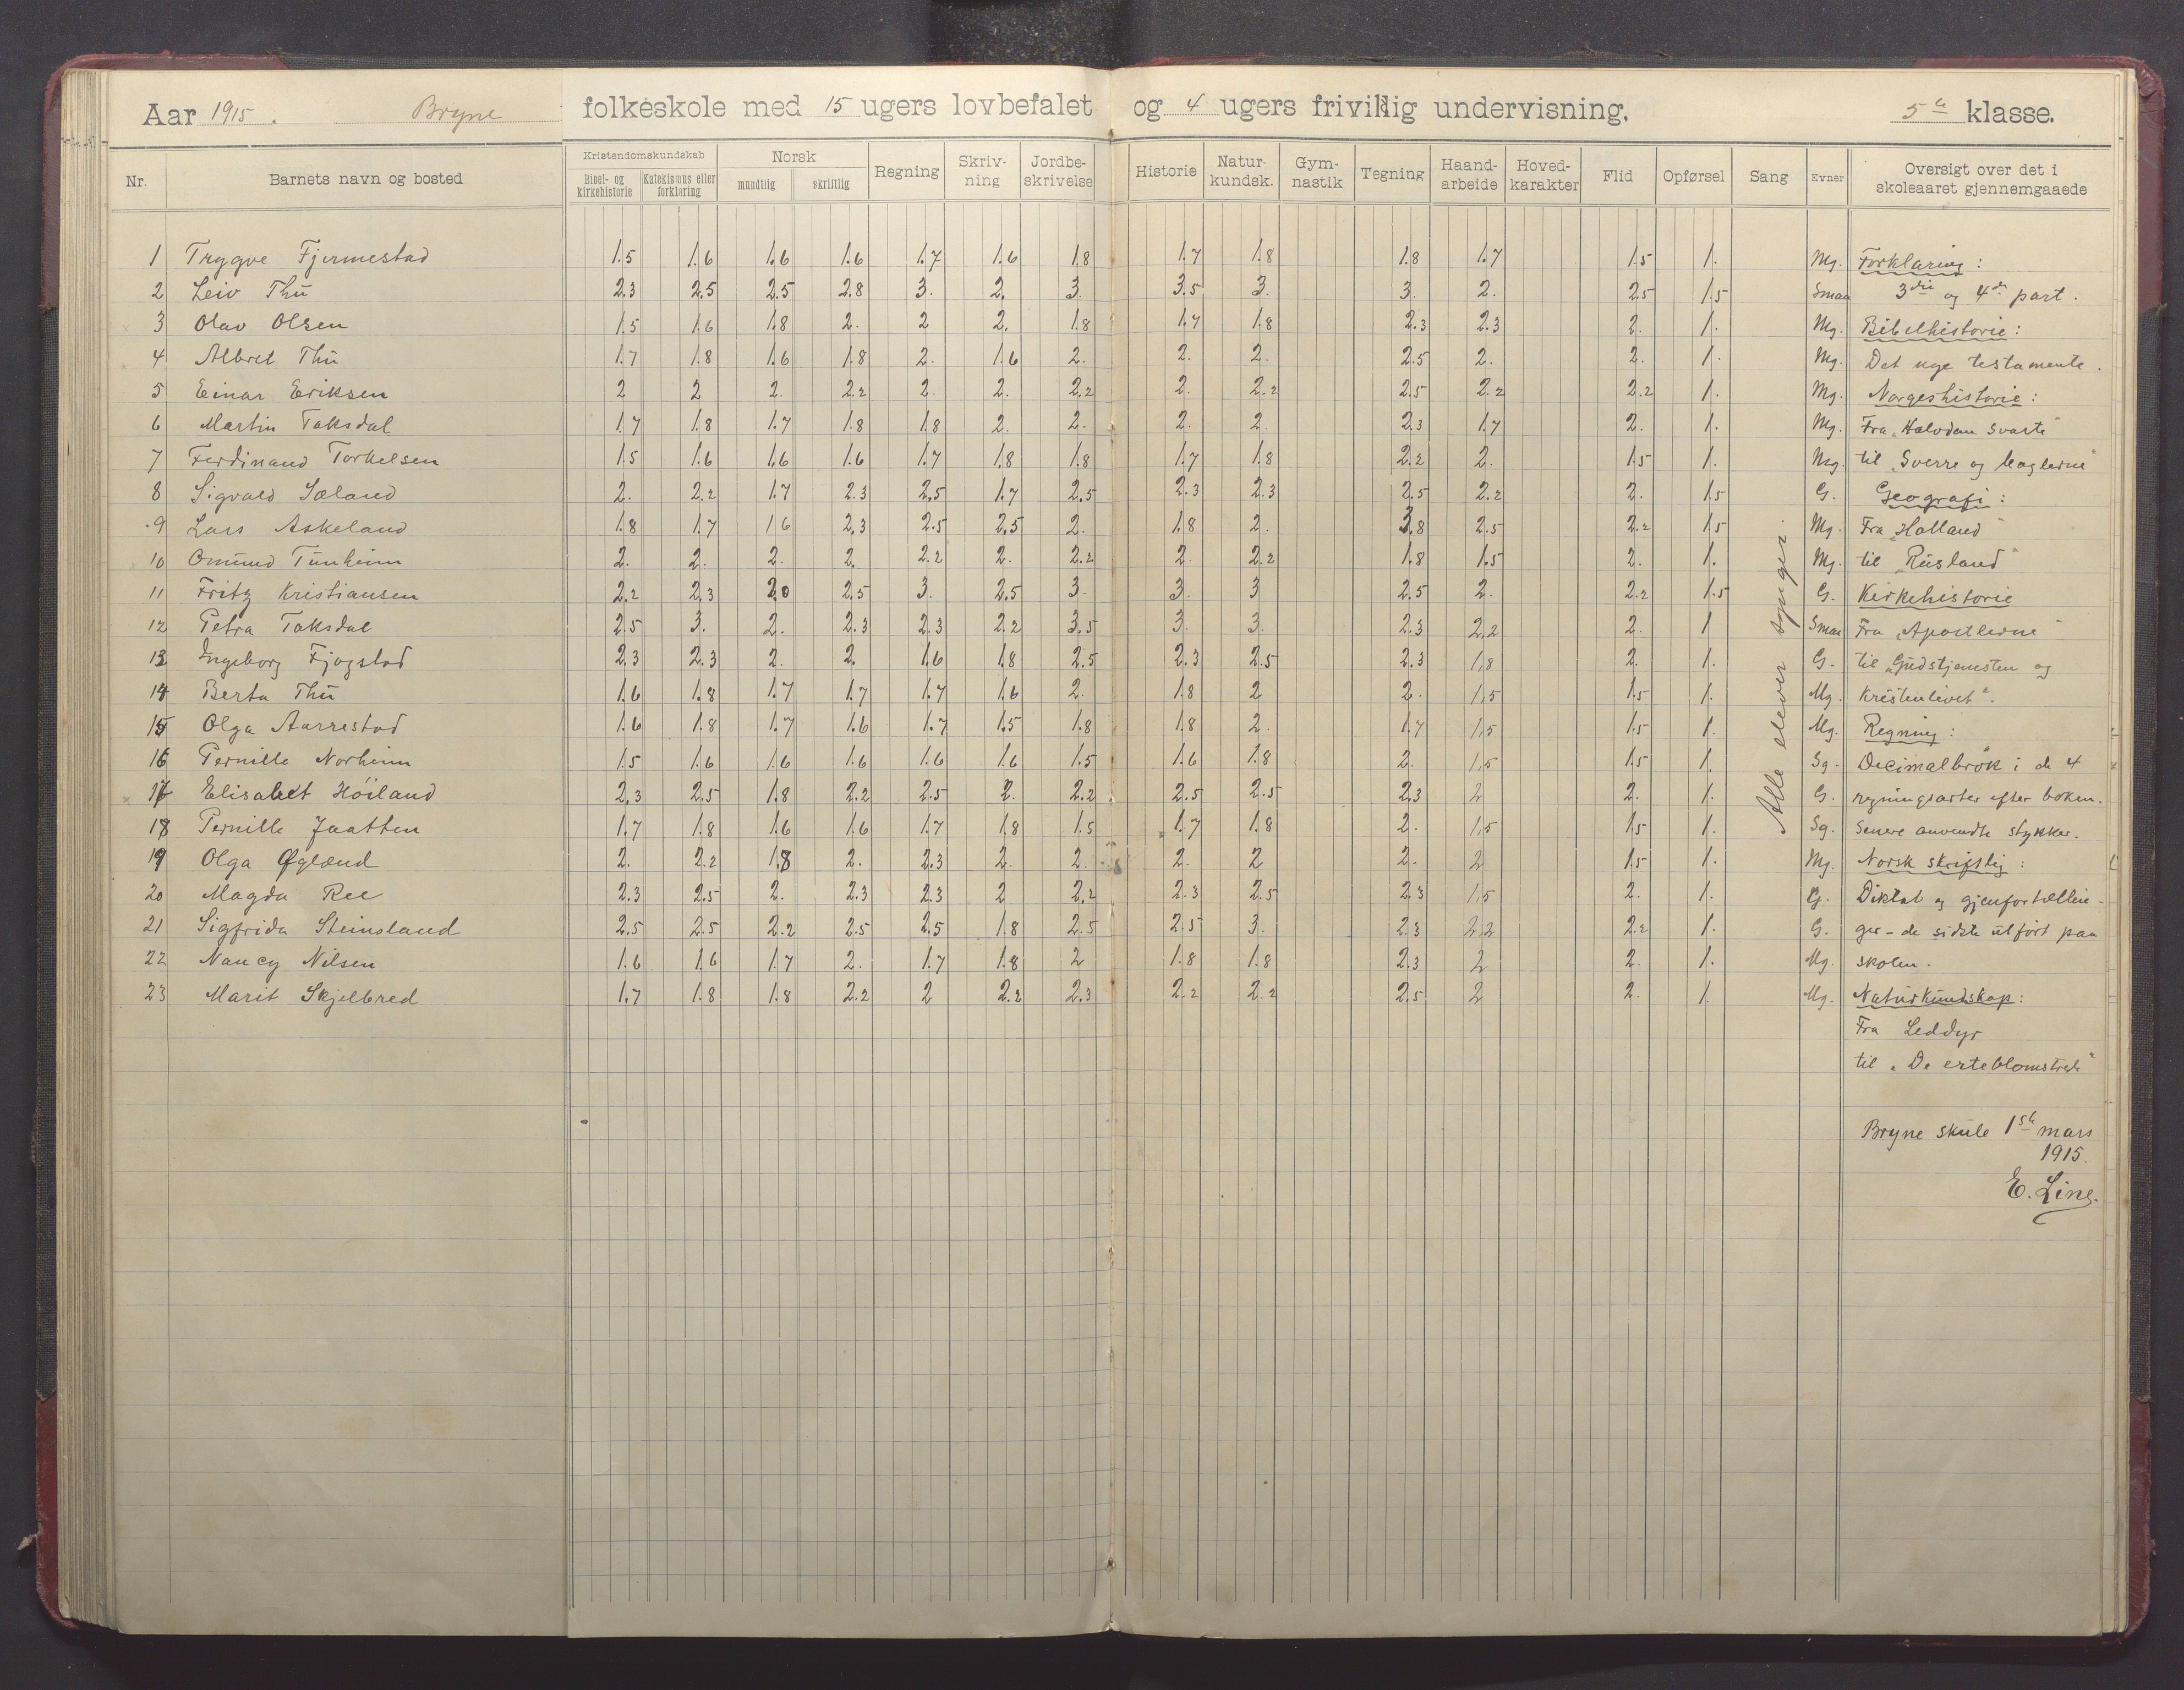 Aar 1915. Bryne folkeskole med 15 ugers lovbefalet og 4 ugers frivillig undervisning. 5te klasse.
Nr. Barnets navn og bosted Kristendomskundskab Bibel- og kirkehistorie Katekismus eller forklaring Norsk mundtlig skriftlig Regning Skrivning Jordbeskrivelse Historie Naturkundsk. Gymnastik Tegning Haandarbeide Hovedkarakter Flid Opførsel Sang Evner Oversigt over det i skoleaaret gjennemgaaede
1 Trygve Fjermestad 1.5 1.6 1.6 1.6 1.7 1.6 1.8 1.7 1.8 1.8 1.7 1.5 1. Mg. Forklaring:
2 Leiv Thu 2.3 2.5 2.5 2.8 3. 2. 3. 3.5 3. 3. 2. 2.5 1.5 Smaa 3die og 4de part.
3 Olav Olsen 1.5 1.6 1.8 2. 2 2. 1.8 1.7 1.8 2.3 2.3 2. 1. Mg. Bibelhistorie:
4 Albret Thu 1.7 1.8 1.6 1.8 2. 1.6 2. 2. 2. 2.5 2. 2. 1. Mg. Det nye testamente.
5 Einar Eriksen 2 2 2. 2.2 2. 2. 2.2 2. 2.2 2.5 2.2 2.2 1. Mg. Norgeshistorie:
6 Martin Taksdal 1.7 1.8 1.7 1.8 1.8 2. 2. 2. 2. 2.3 1.7 2. 1. Mg. Fra „Halvdan Svarte"
7 Ferdinand Torkelsen 1.5 1.6 1.6 1.6 1.7 1.8 1.8 1.7 1.8 2.2 2. 1.5 1. Mg. til „Sverre og baglerne"
8 Sigvald Sæland 2. 2.2 1.7 2.3 2.5 1.7 2.5 2.3 2.3 2.5 2.2 2. 1.5 G. Geografi:
9 Lars Askeland 1.8 1.7 1.6 2.3 2.5 2.5 2. 1.8 2. 3.8 2.5 2.2 1.5 Mg. Fra „Holland"
10 Omund Tunheim 2. 2. 2. 2. 2.2 2. 2.2 2. 2.2 1.8 1.5 2. 1. Mg. til „Rusland"
11 Fritz Kristiansen 2.2 2.3 2.0 2.5 3. 2.5 3. 3. 3 2.5 2. 2.2 1.5 G. Kirkehistorie
12 Petra Taksdal 2.5 3. 2. 2.3 2.3 2.2 3.5 3. 3. 2.3 2.2 2. 1 Smaa Fra „Apostlerne"
13 Ingeborg Fjogstad 2.3 2.3 2. 2. 1.6 1.8 2.5 2.3 2.5 2.3 1.8 2. 1. G. til „Gudstjenesten og
14 Berta Thu 1.6 1.8 1.7 1.7 1.7 1.6 2. 1.8 2 2. 1.5 1.5 1. Mg. kristenlivet".
15 Olga Aarrestad 1.6 1.8 1.7 1.6 1.7 1.5 1.8 1.8 2. 1.7 1.5 1.5 1. Mg. Regning:
16 Pernille Norheim 1.5 1.6 1.6 1.6 1.6 1.6 1.5 1.6 1.8 2. 1.5 1.5 1. Sg. Decimalbrøk i de 4
17 Elisabet Höiland 2.3 2.5 1.8 2.2 2.5 2. 2.2 2.5 2.5 2.3 2 2. 1. G. regningsarter efter boken.
18 Pernille Jaatten 1.7 1.8 1.6 1.6 1.7 1.8 1.5 1.7 1.8 2. 1.5 1.5 1. Sg. Senere anvendte stykker.
19 Olga Øglænd 2. 2.2 1.8 2. 2.3 2. 2. 2. 2 2. 2 1.5 1. Mg. Norsk skriftlig:
20 Magda Ree 2.3 2.5 2. 2.3 2.3 2 2.2 2.3 2.5 2.3 1.5 2. 1. G. Diktat og gjenfortællin-
21 Sigfrida Steinsland 2.5 2.5 2.2 2.5 2.5 1.8 2.5 2.5 3. 2.3 2.2 2.2 1. G. ger – de sidste utført paa
22 Nancy Nilsen 1.6 1.6 1.7 2. 1.7 1.8 2 1.8 1.8 2.3 2 2. 1. Mg. skolen.
23 Marit Skjelbred 1.7 1.8 1.8 2.2 2 2.2 2.3 2.2 2.2 2.5 2 2. 1. Mg. Naturkundskap:
Alle elever synger.
Fra Leddyr
til „De erteblomstrede"
Bryne skule 1ste mars
1915.
E. Line.